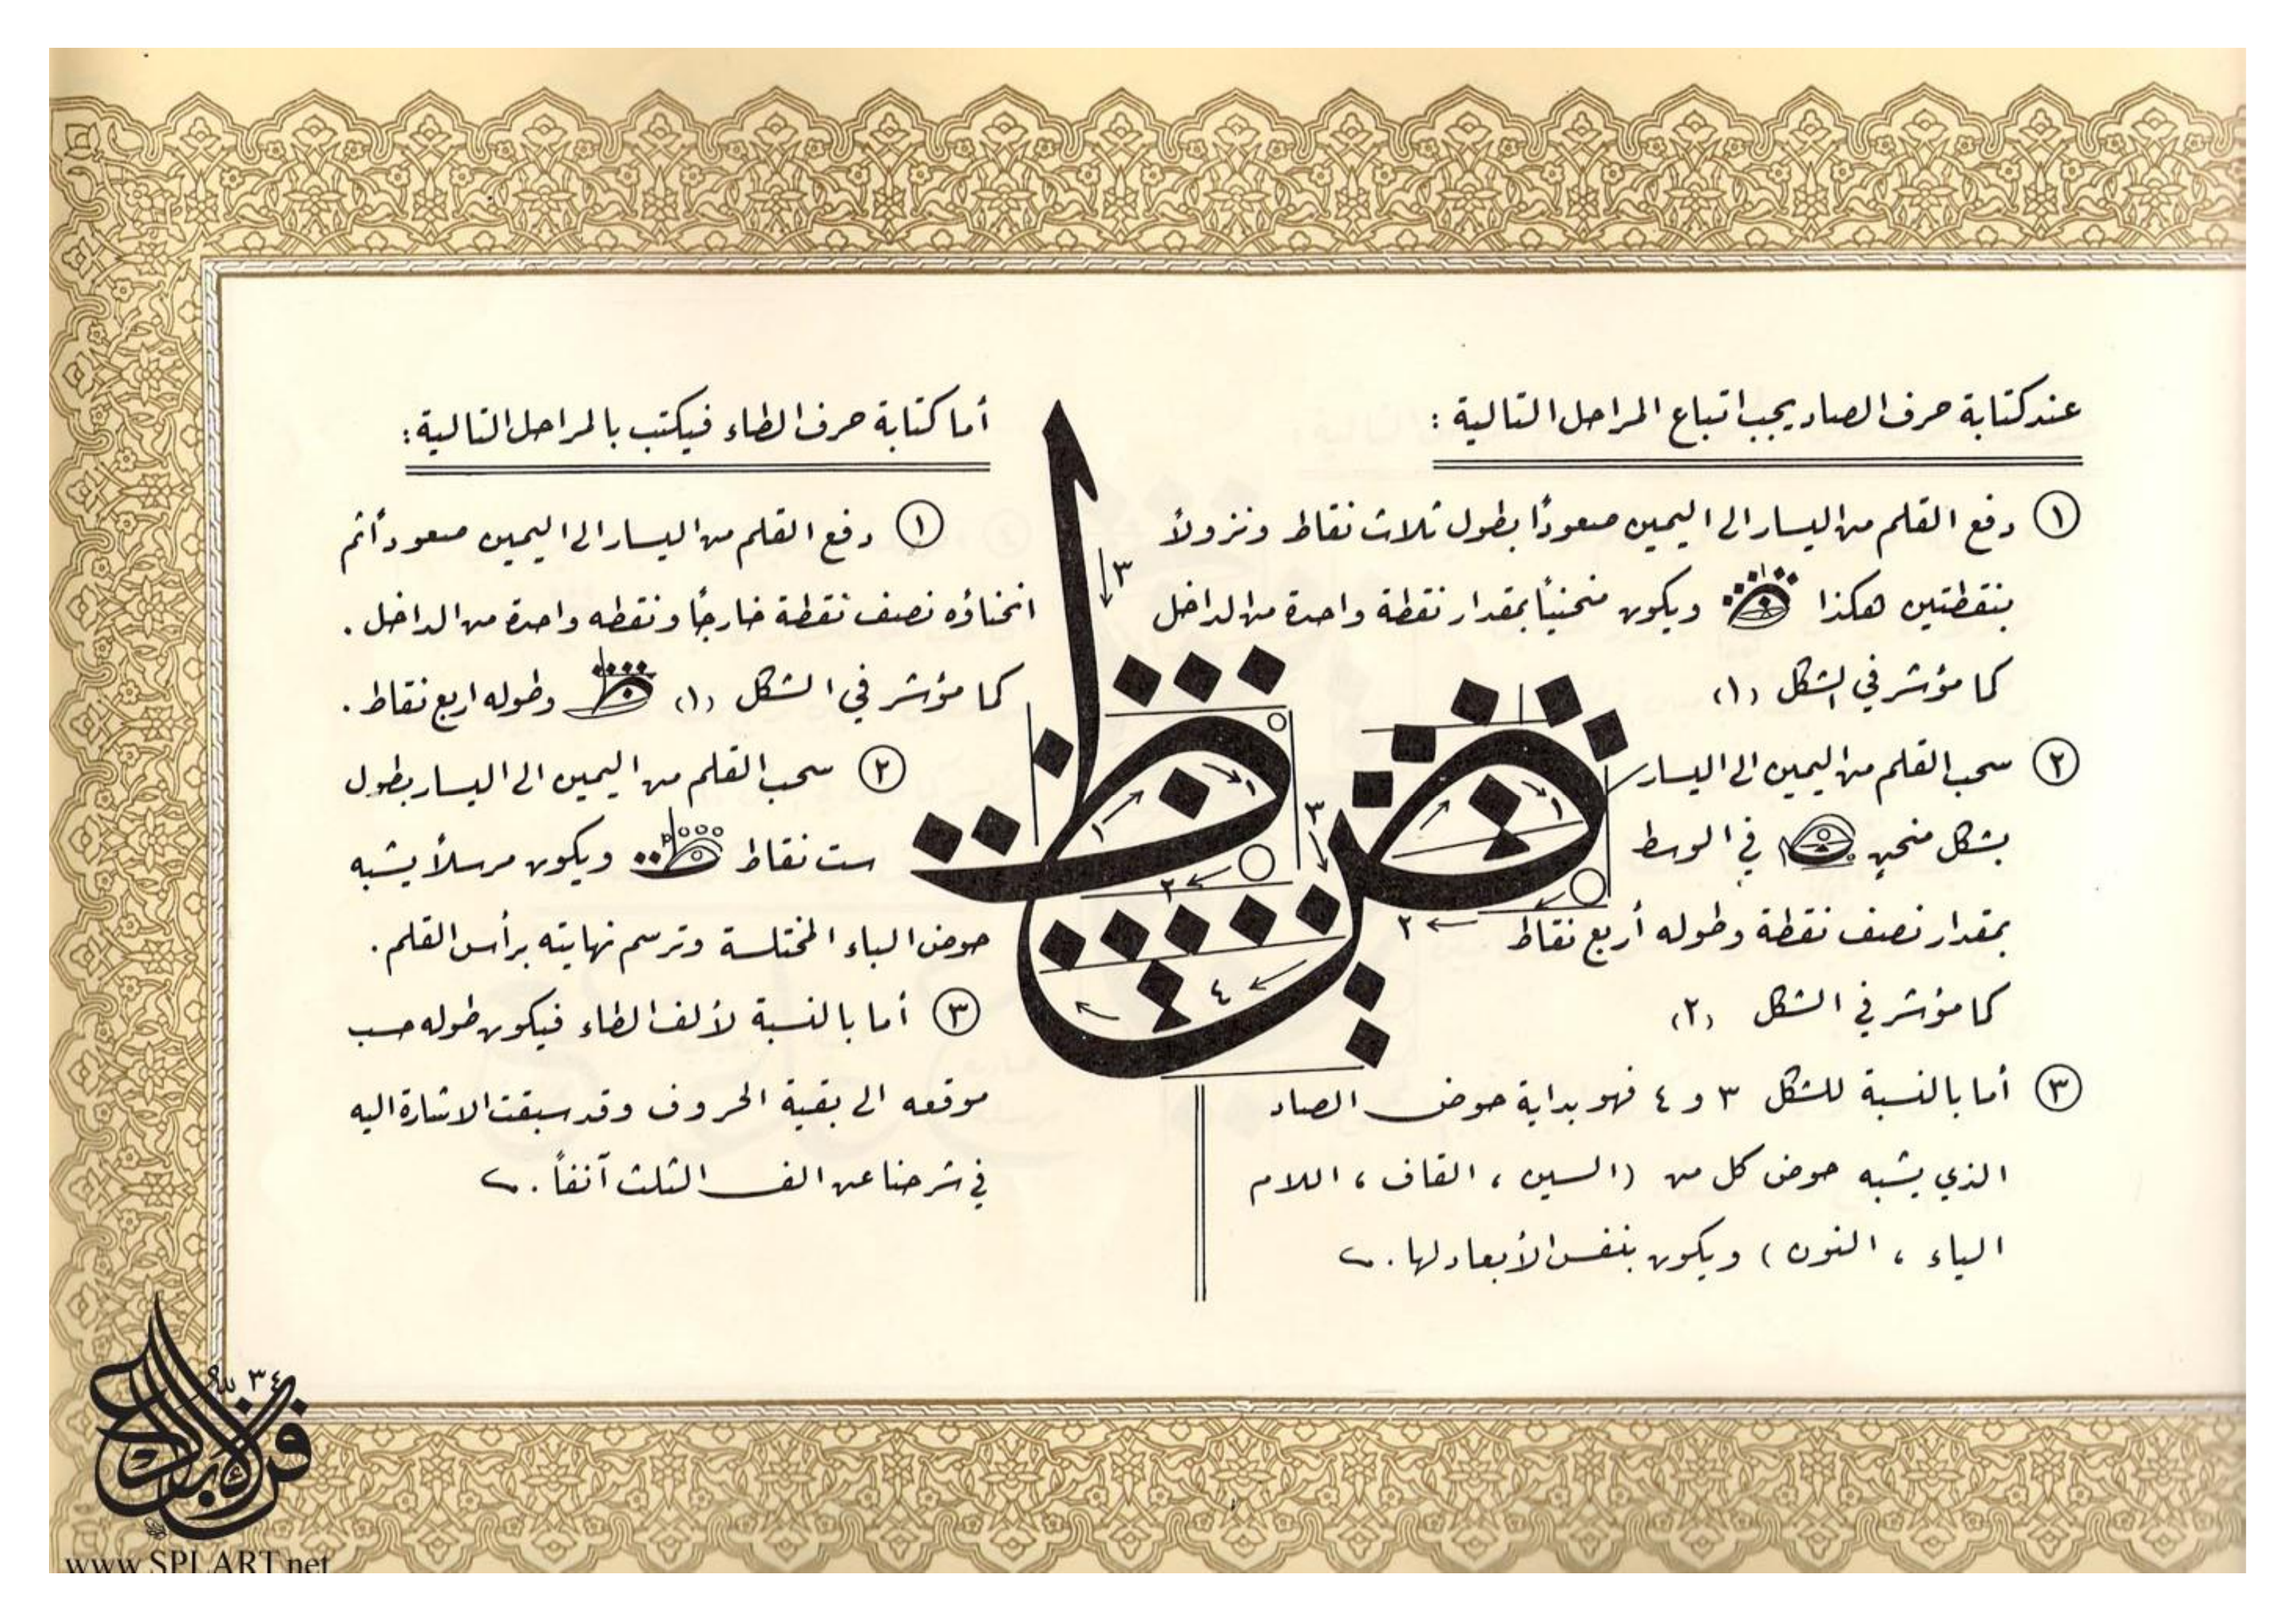 عند كتابة حرف الصاد يجب اتباع المراحل التالية :
١ دفع القلم من اليسار الى اليمين صعوداً بطول ثلاث نقاط ونزولاً
بنقطتين هكذا ويكون منحنياً بمقدار نقطة واحدة من الداخل
كما مؤشر في الشكل (١)
٢ سحب القلم من اليمين الى اليسار
بشكل منحنٍ في الوسط
بمقدار نصف نقطة وطوله أربع نقاط
كما مؤشر في الشكل (٢)
٣ أما بالنسبة للشكل ٣ و ٤ فهو بداية حوض الصاد
الذي يشبه حوض كل من (السين ، القاف ، اللام
الياء ، النون) ويكون بنفس الأبعاد لها .
أما كتابة حرف الطاء فيكتب بالمراحل التالية :
١ دفع القلم من اليسار الى اليمين صعوداً ثم
انحناؤه نصف نقطة خارجاً ونقطه واحدة من الداخل .
كما مؤشر في الشكل (١) وطوله اربع نقاط .
٢ سحب القلم من اليمين الى اليسار بطول
ست نقاط ويكون مرسلاً يشبه
حوض الباء المختلسة وترسم نهايته برأس القلم .
٣ أما بالنسبة لألف الطاء فيكون طوله حسب
موقعه الى بقية الحروف وقد سبقت الاشارة اليه
في شرحنا عن الف الثلث آنفاً .
ض ط
٣
١
١
٢
٣
١
٢
٤
٣٤
www.SPLART.net